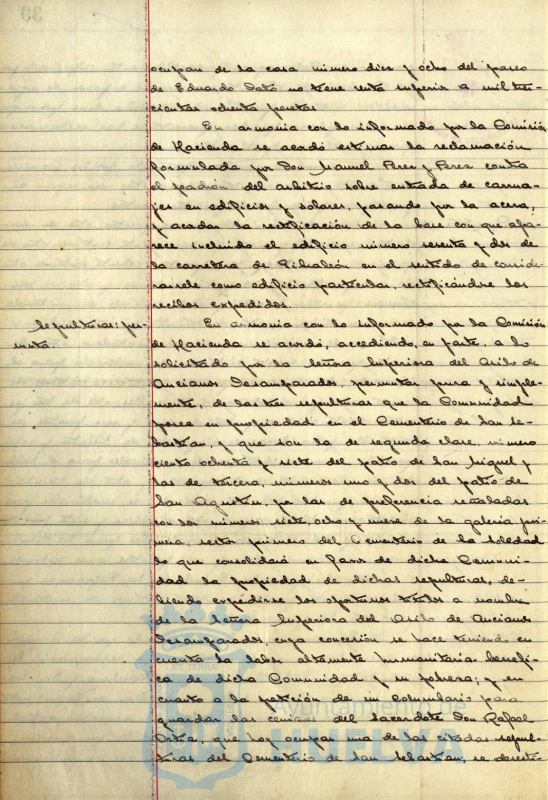 ocupan de la casa número diez y ocho del paseo
de Eduardo Dato no tiene renta superior a mil tres-
cientas ochenta pesetas
En armonía con lo informado por la Comisión
de Hacienda se acordó estimar la reclamación
formulada por Don Manuel Perez y Perez contra
el padrón del arbitrio sobre entrada de carrua-
jes en edificios y solares, pasando por la acera,
y acordar la rectificación de la base con que apa-
rece incluido el edificio número sesenta y dos de
la carretera de Gibraleón en el sentido de conside-
rarsele como edificio particular, rectificándose los
recibos expedidos.
Sepulturas: per-
muta.
En armonía con lo informado por la Comisión
de Hacienda se acordó, accediendo, en parte, a lo
solicitado por la Señora Superiora del Asilo de
Ancianos Desamparados, permutar pura y simple-
mente, de las tres sepulturas que la Comunidad
posee en propiedad en el Cementerio de San Se-
bastián, y que son la de segunda clase, número
ciento ochenta y siete del patio de San Miguel y
las de tercera, números uno y dos del patio de
San Agustín, por las de preferencia señaladas
con los números siete, ocho y nueve de la galería pri-
mera, sector primero del Cementerio de la Soledad
lo que consolidará en favor de dicha Comuni-
dad la propiedad de dichas sepulturas, de-
biendo expedirse los oportunos títulos a nombre
de la Señora Superiora del Asilo de Ancianos
Desamparados, cuya concesión se hace teniendo en
cuenta la labor altamente humanitaria benéfi-
ca de dicha Comunidad y su pobreza; y en
cuanto a la petición de un columbario para
guardar las cenizas del sacerdote Don Rafael
Ortia, que hoy ocupan una de las citadas sepul-
turas del Cementerio de San Sebastian, se desesti-
Ayuntamiento de
HUELVA